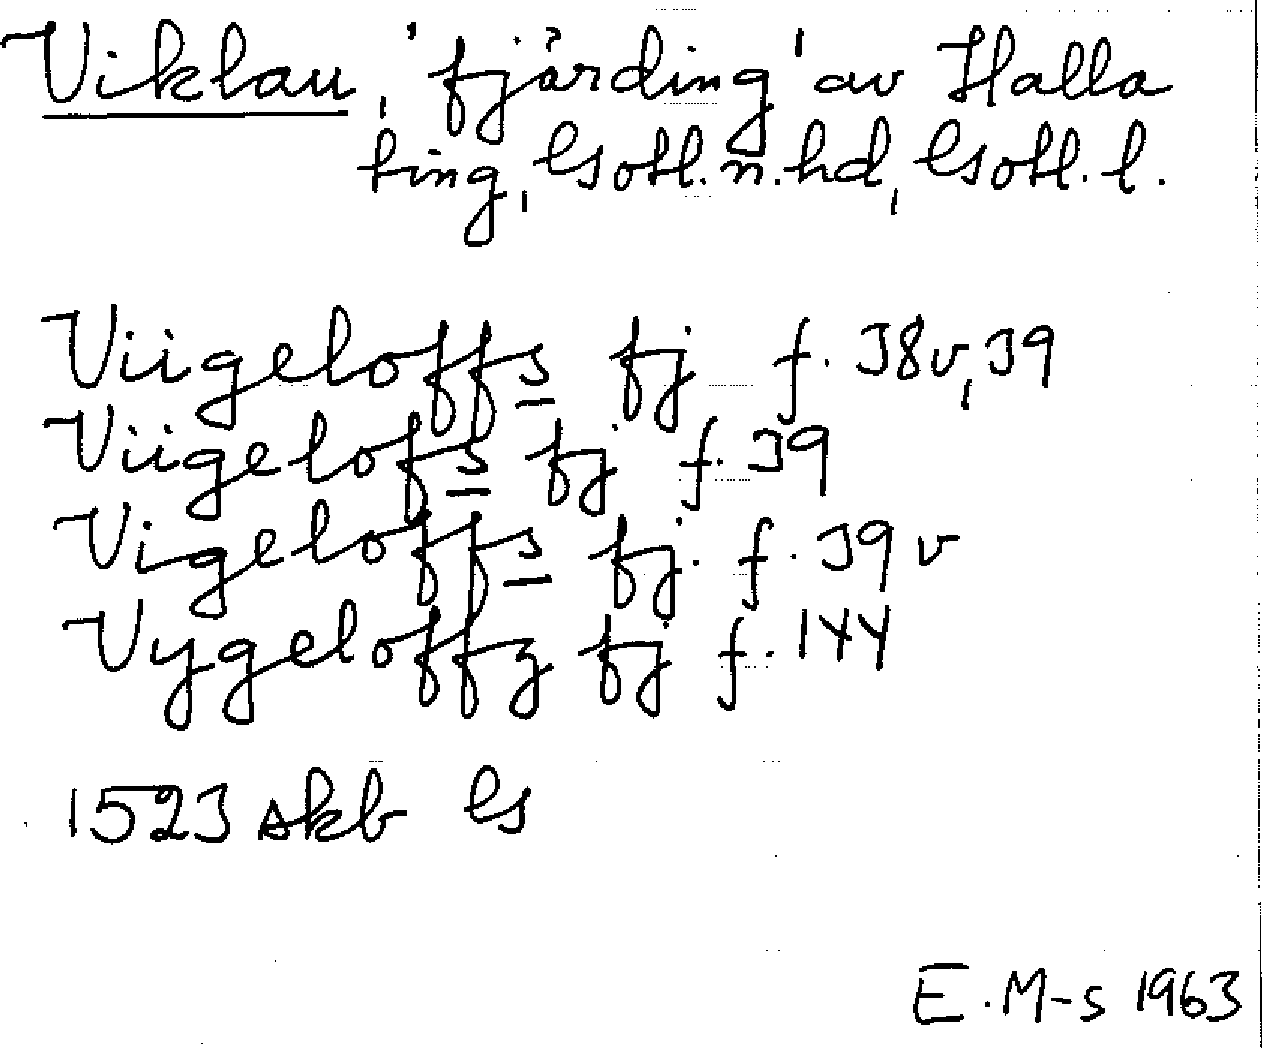 Viklau, 'fjärding' av Halla
ting, Gotl. n. hd, Gotl. l.
Viigeloffs fj f. 38v, 39
Viigelofs fj f. 39
Vigeloffs fj. f. 39 v
Vygeloffz fj f. 144
1523 skb G
E. M-s 1963